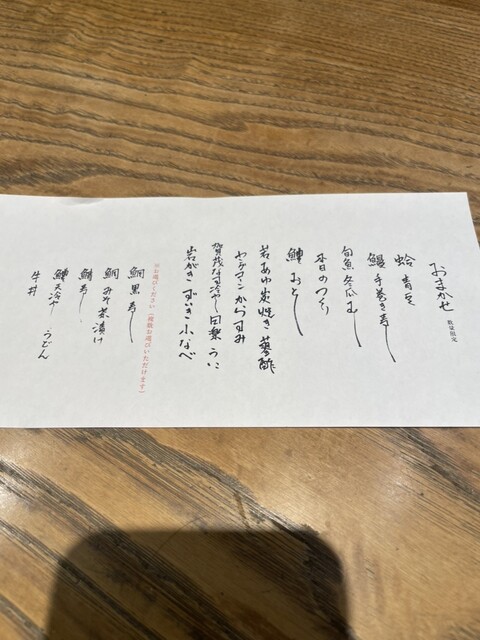 おまかせ 数量限定
蛤 青豆
鰻 手巻き寿し
旬魚 冬瓜むし
本日のつくり
鱧 おとし
若あゆ炭焼き 蓼酢
ヤングマン からすみ
賀茂なす冷やし田楽 うに
岩がき ずいき小なべ
※お選びください(複数お選びいただけます)
鯛黒寿し
鯛みそ茶漬け
鯖寿し
鱧天冷や うどん
牛丼